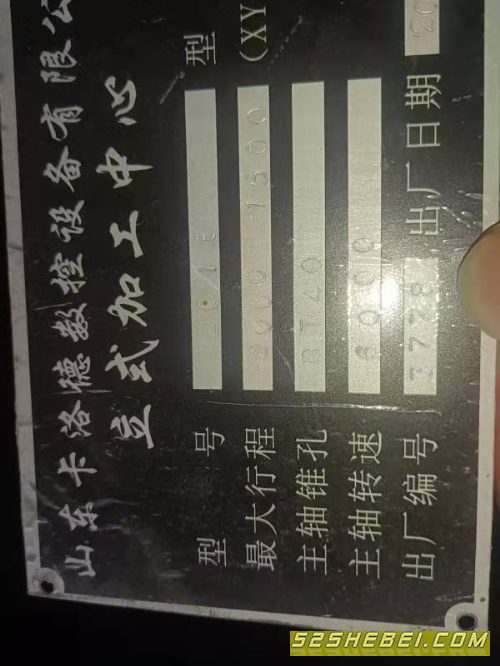 山东卡洛德数控设备有限公
立式加工中心
型号 型
最大行程 1500 (XY
主轴锥孔 BT40
主轴转速
出厂编号 出厂日期 20
52SHEBEI.COM